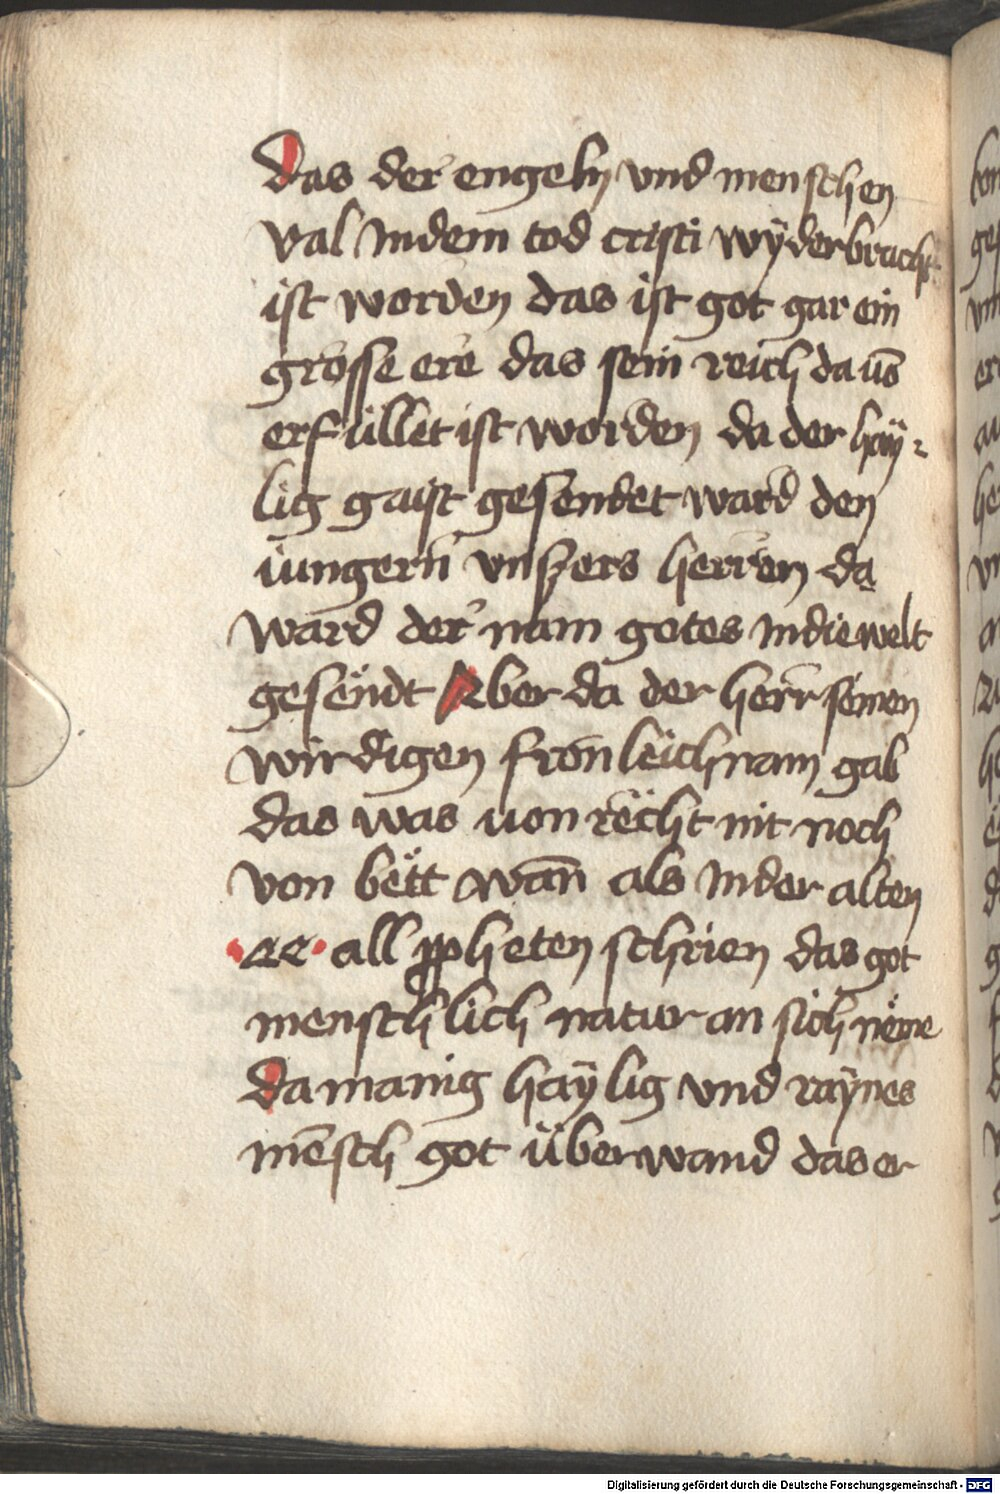 Das der engeln vnd menschen
val Indem tod cristi wÿderbracht
ist worden das ist got gar ein
grosse ere das sein reich da uͦs
erfüllet ist worden da der haÿ⸗
lig gaist gesendet ward den
iungern vnszers herren da
ward der nam gotes Indie welt
gesendt Aber da der herr seinen
wirdigen fronleichnam gab
das was uon recht nit noch
von bett wan̄ als Inder alten
·ee· all ꝓpheten schrien das got
menschlich natur an sich neme
Da manig haÿlig vnd raÿnes
mēsch got überwand das er
Digitalisierung gefördert durch die Deutsche Forschungsgemeinschaft - DFG